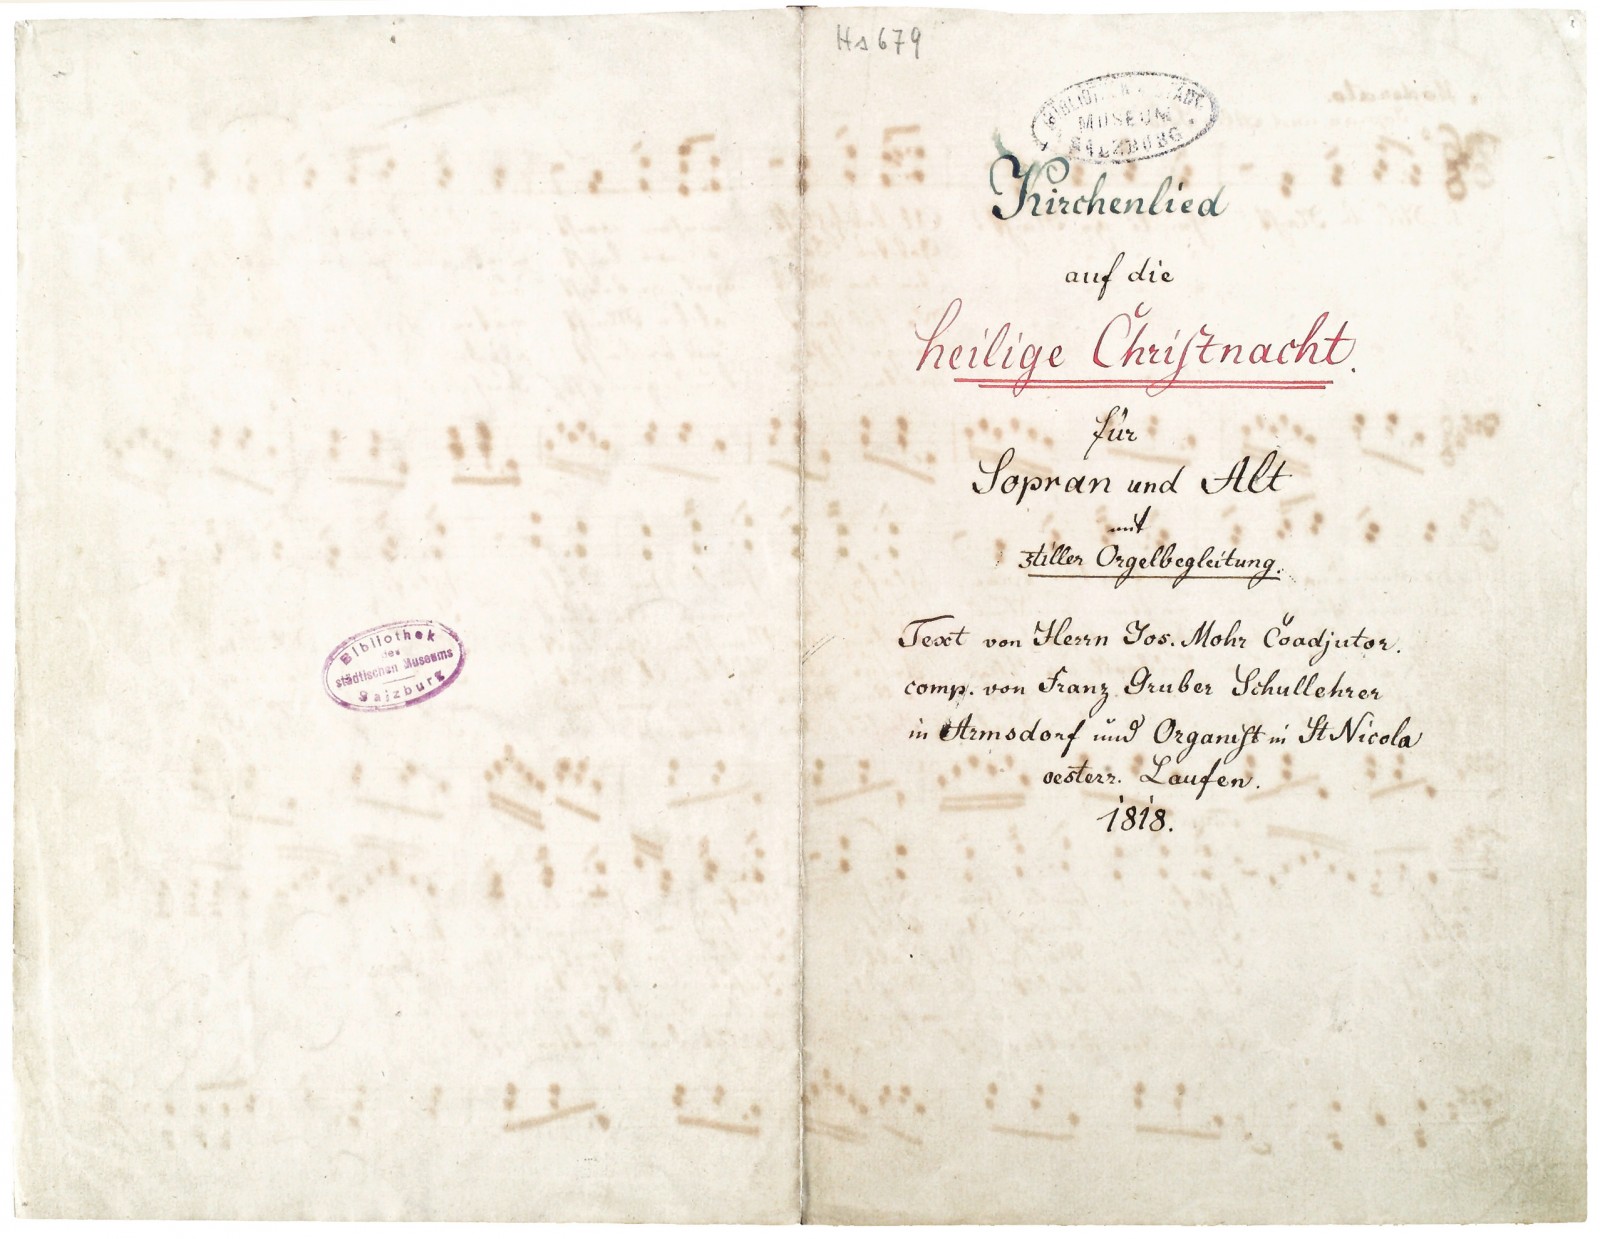 Bibliothek
des
städtischen Museums
Salzburg
Hs 679
BIBLIOTHEK STÄDT.
MUSEUM
SALZBURG
Moderato.
Kirchenlied
auf die
heilige Chriſtnacht.
für
Sopran und Alt
mit
stiller Orgelbegleitung.
Text von Herrn Jos. Mohr Coadjutor.
comp. von Franz Gruber Schullehrer
in Armsdorf und Organiſt in St Nicola
oesterr. Laufen.
1818.